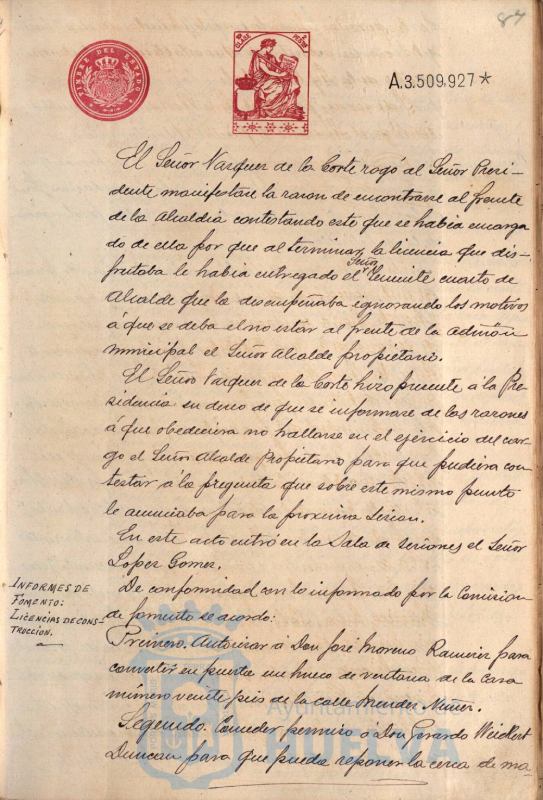 87
TIMBRE DEL ESTADO
CLASE
A.3.509,927*
El Señor Vazquez de la Corte rogó al Señor Presi-
dente manifestase la razon de encontrarse al frente
de la Alcaldía contestando este que se habia encarga
do de ella por que al terminar la licencia que dis-
frutaba le habia entregado el Señor Teniente cuarto de
Alcalde que la desempeñaba ignorando los motivos
á que se deba el no estar al frente de la admón
municipal el Señor Alcalde propietario.
El Señor Vazquez de la Corte hizo presente á la Pre
sidencia su deseo de que se informase de las razones
á que obedeciera no hallarse en el ejercicio del car-
go el Señor Alcalde Propietario para que pudiera con
testar á la pregunta que sobre este mismo punto
le anunciaba para la proxima sesion.
En este acto entró en la Sala de sesiones el Señor
Lopez Gomez.
INFORMES DE
FOMENTO:
LICENCIAS DE CONS-
TRUCCION.
De conformidad con lo informado por la Comision
de fomento se acordo:
Primero. Autorizar á Don José Moreno Ramirez para
convertir en puerta un hueco de ventana de la casa
número veinte piés de la calle Mendez Nuñez.
Segundo. Conceder permiso á Don Gerardo Weidlert
Duncan para que pueda reponer la cerca de ma-
Ayuntamiento de
HUELVA